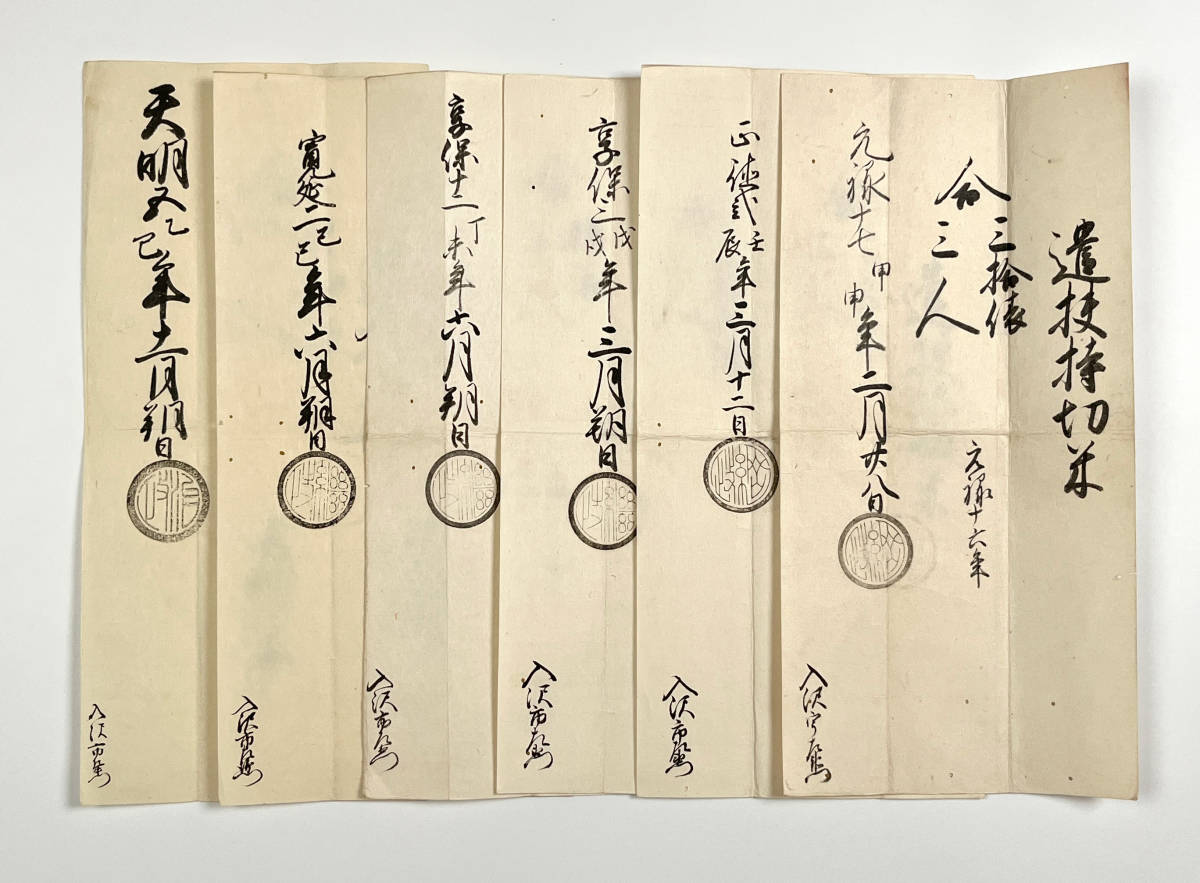 遣扶持切米
三拾俵
合三人
元禄十六年
元禄十七甲申年二月廿八日
入沢
正徳弐壬辰年三月十二日
入沢市左衛門
享保三戊戌年三月朔日
入沢市左衛門
享保十二丁未年六月朔日
入沢市左衛門
寛延二己巳年六月朔日
入沢市左衛門
天明五乙巳年十二月朔日
入沢市